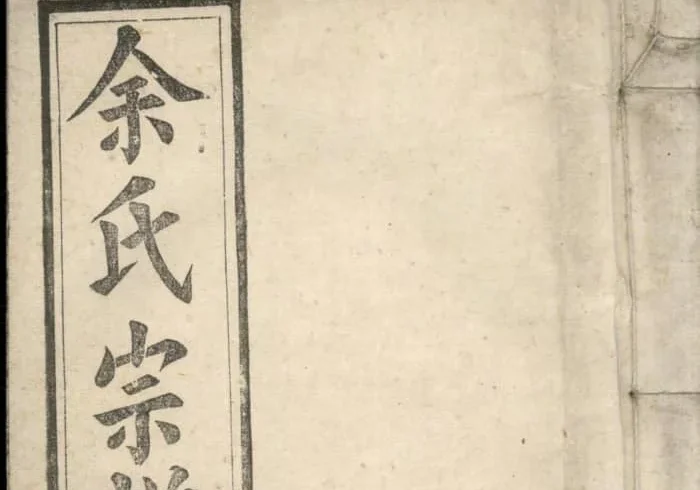 余氏宗